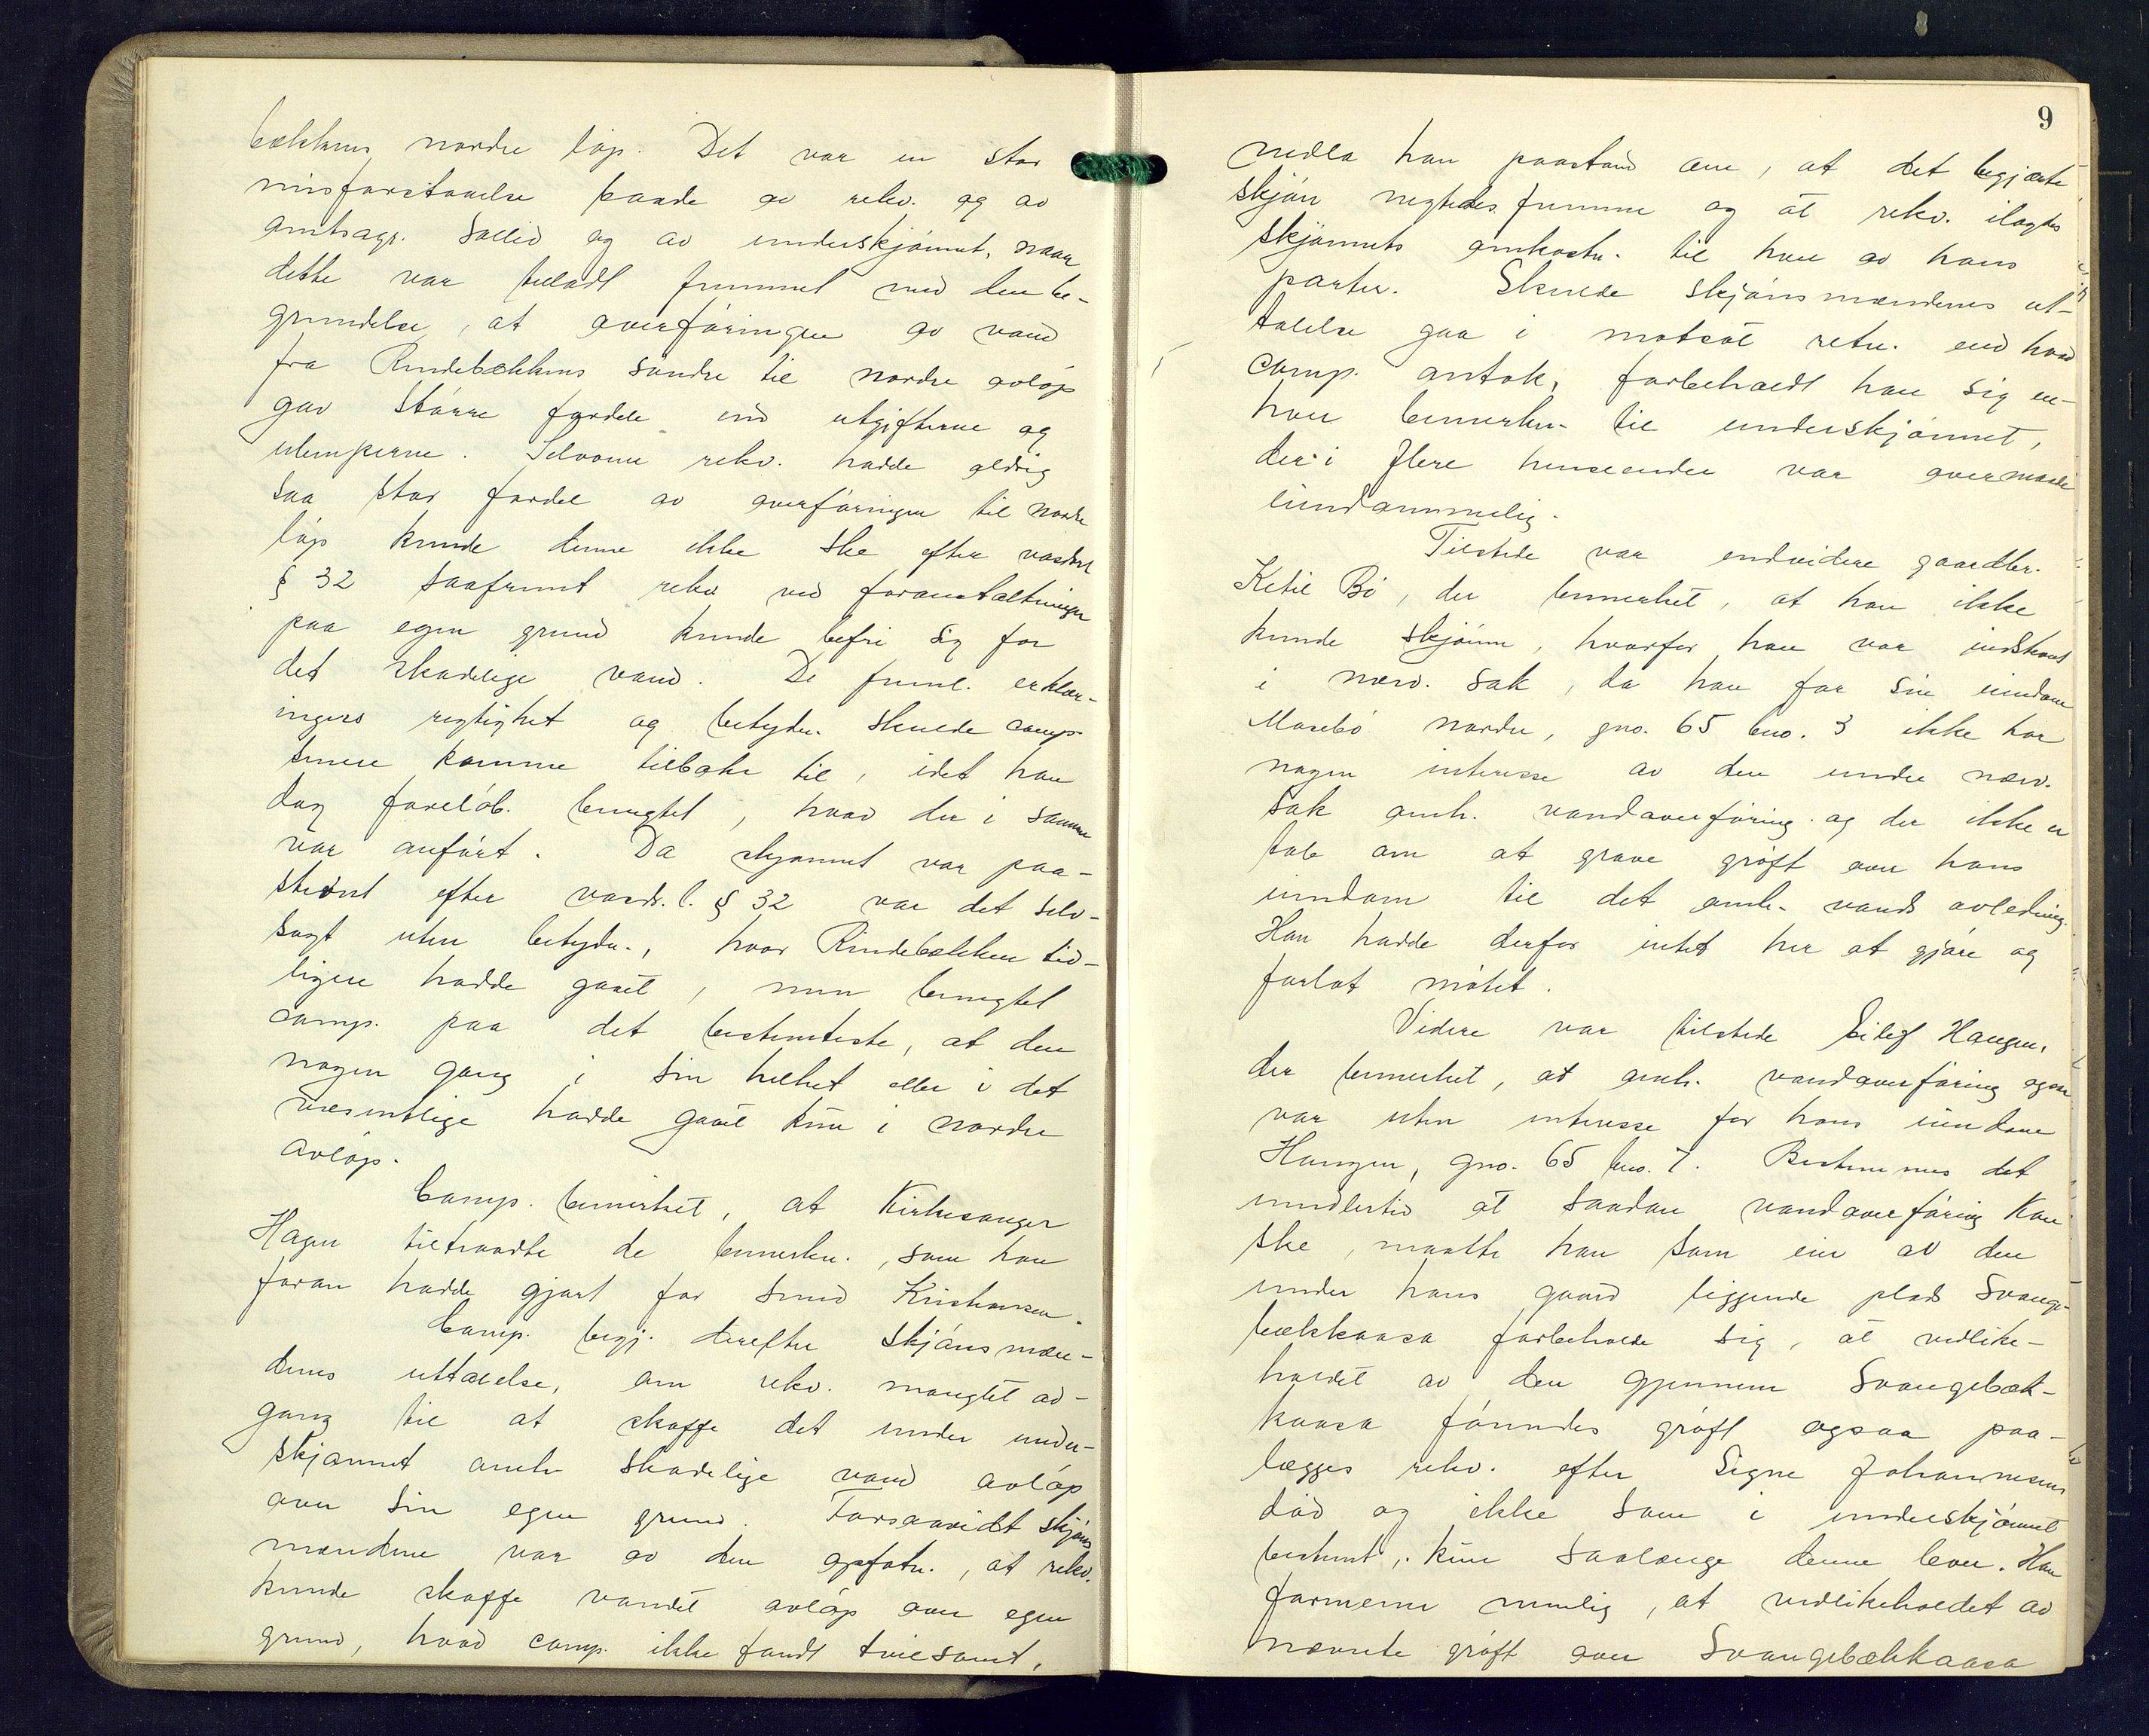 bækkens nordre løp. Det var en stor
misforstaaelse baade av rekv. og av
amtsagr. Sollid og av underskjønnet, naar
dette var tilladt fremmet med den be-
grundelse, at overføringen av vand
fra Rindebækkens søndre til nordre avløp
gav større fordele end utgifterne og
ulemperne. Selvom rekv. hadde aldrig
saa stor fordel av overføringen til nordre
løp kunde denne ikke ske efter vasdrl
§ 32 saafremt rekv ved foranstaltninger
paa egen grund kunde befri sig for
det skadelige vand. De freml. erklær-
ingers rigtighet og betydn. skulde comp
senere komme tilbake til, idet han
dog foreløb. benegtet, hvad der i samme
var anført. Da skjønnet var paa-
stevnt efter vasdr. l. § 32 var det selv-
sagt uten betydn., hvor Rindebækken tid-
ligere hadde gaaet, men benegtet
comp. paa det bestemteste, at den
nogen gang i sin helhet eller i det
væsentlige hadde gaaet kun i nordre
avløp.
Comp. bemerket, at Kirkesanger
Hagen tiltraadte de bemerkn., som han
foran hadde gjort for Smed Kristiansen.
Comp. begj. derefter skjønsmæn-
denes uttalelse, om rekv. manglet ad-
gang til at skaffe det under under-
skjønnet omh. skadelige vand avløp
over sin egen grund. Forsaavidt skjøns
mændene var av den opfatn., at rekv.
kunde skaffe vandet avløp over egen
grund, hvad comp. ikke fandt tvilsomt,
9
nedla han paastand om, at det begjærte
skjøn negtedes fremme og at rekv. ilagdes
skjønnets omkostn. til han av hans
parter. Skulde skjønsmændenes ut-
talelse gaa i motsat retn. end hvad
comp. antok, forbeholdt han sig en-
hver bemerkn. til underskjønnet,
der i flere henseender var overmaade
eiendommelig.
Tilstede var endvidere gaardbr.
Ketil Bø, der bemerket, at han ikke
kunde skjønne, hvorfor han var indstevnt
i nærv. sak, da han for sin eiendom
Mosebø nordre, gno. 65 bno. 3 ikke har
nogen interesse av den under nærv.
sak omh. vandoverføring og der ikke er
tale om at grave grøft over hans
eiendom til det omh. vands avledning.
Han hadde derfor intet her at gjøre og
forlot møtet.
Videre var tilstede Eilef Haugen,
der bemerket, at omh. vandoverføring ogsaa
var uten interesse for hans eiendom
Haugen, gno. 65 bno. 7. Bestemmes det
imidlertid at saadan vandoverføring kan
ske, maatte han som eier av den
under hans gaard liggende plads Svange-
bækkaasa forbeholde sig, at vedlike-
holdet av den gjennem Svangebæk-
kaasa førendes grøft ogsaa paa-
lægges rekv. efter Signe Johannesens
død og ikke som i underskjønnet
bestemt, kun saalænge denne lever. Han
formener nemlig, at vedlikeholdet av
nævnte grøft over Svangebækkaasa